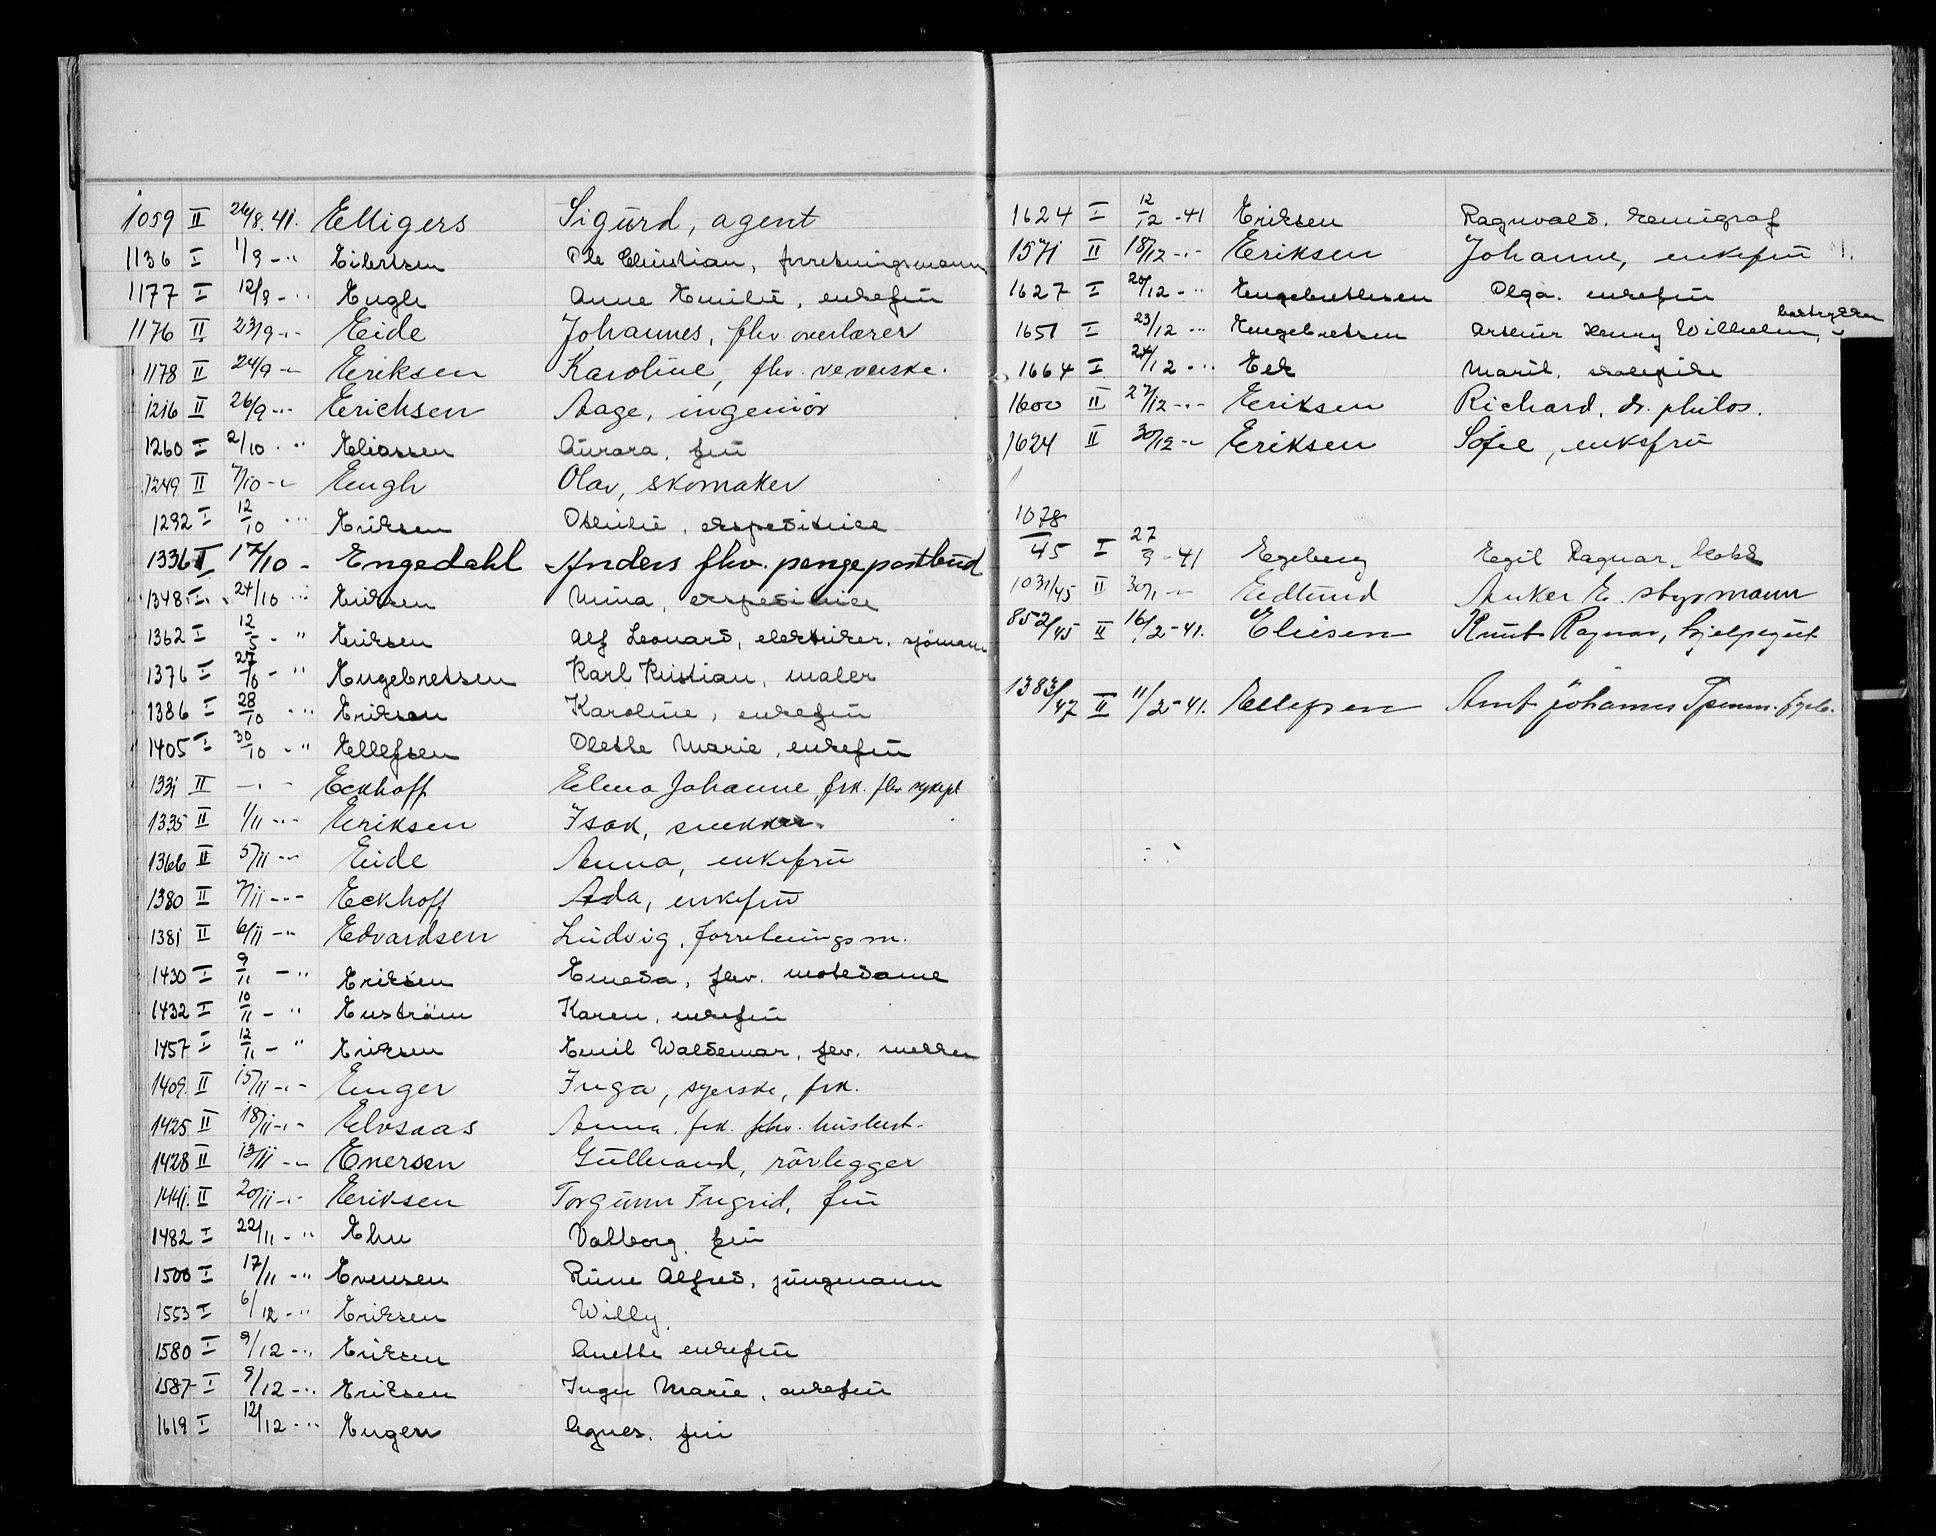 1059 II 26/8.41. Elligers Sigurd, agent
1136 I 1/9 - " Eilertsen Ole Christian, forretningsmann
1177 I 12/9 - " Engh Anne Emilie, enkefru
1176 II 23/9 - " Eide Johannes, fhv. overlærer
1178 II 24/9 - " Eriksen Karoline, fhv. veverske.
1216 II 26/9 - " Erichsen Aage, ingeniör
1260 I 2/10 - " Eliassen Aurora, fru
1249 II 7/10 - " Engh Olav, skomaker
1292 I 12/10 - " Eriksen Othilie, ekspeditrice
1336 I 17/10 - Engedahl Anders fhv. pengepostbud
1348 I 24/10 - " Eriksen Mina, ekspeditrice
1362 I 12/5 - " Eriksen Alf Leonard, elektriker, sjömann
1376 I 27/8 - " Engebretsen Karl Kristian, maler
1386 I 28/10 - " Erikson Karoline, enkefru
1405 I 30/10 - " Ellefsen Olette Marie, enkefru
1331 II - " - Eckhoff Elma Johanne, frk. fhv. sykepl
1335 II 1/11 - " Eriksen Isak, snekker.
1366 II 5/11 - " Eide Anna, enkefru
1380 II 7/11 - " Eckhoff Ada, enkefru
1381 II 6/11 - " Edvardsen Ludvig, forretningsm.
1430 I 9/11 - " Eriksen fhv. motedame
1432 I 10/11 - " Enström Karen, enkefru
1457 I 12/11 - " Eriksen Emil Waldemar, fhv.
1409. II 15/11 - " Enger Inga, syerske, frk.
1425 II 18/11 - " Elvsaas Anna. frk. fhv. husbest.
1428 II 13/11 - " Enersen Gulbrand, rörlegger
1441. II 20/11 - " Eriksen Torgunn Ingrid, fru
1482 I 22/11 - " Ehn Valborg, fru
1500 I 17/11 - " Evensen Rune Alfred, jungmann
1553 I 6/12 - " Eriksen Willy.
1580 I 9/12 - " Eriksen Anette enkefru
1587 I 9/12 - " Eriksen Inga Marie, enkefru
1619 I 12/12 - " Engen Agnes, fru
1624 I 12/12 - 41 Eriksen Ragnvald, kemigraf
1571 II 18/12 - " Eriksen Johanne, enkefru
1627 I 20/12 - " Engebrethsen Olga. enkefru
1651 I 23/12 - " Engebretsen Arthur Henry Wilhelm, boktrykker
1664 I 24/12 - " Eek Marit, skolepike
1600 II 27/12 - " Eriksen Richard, dr. philos.
1624 II 30/12 - " Eriksen Sofie, enkefru
1078/45 I 27/3 - 41 Egeberg Egil Ragnar, kokk
1031/45 II 30/1 - " Edlund Anker E. styrmann
852/45 II 16/2 - 41. Eliesen Knut Ragnar, hjelpegut
1383/47 II 11/2 - 41. Ellefsen Arnt Johannes